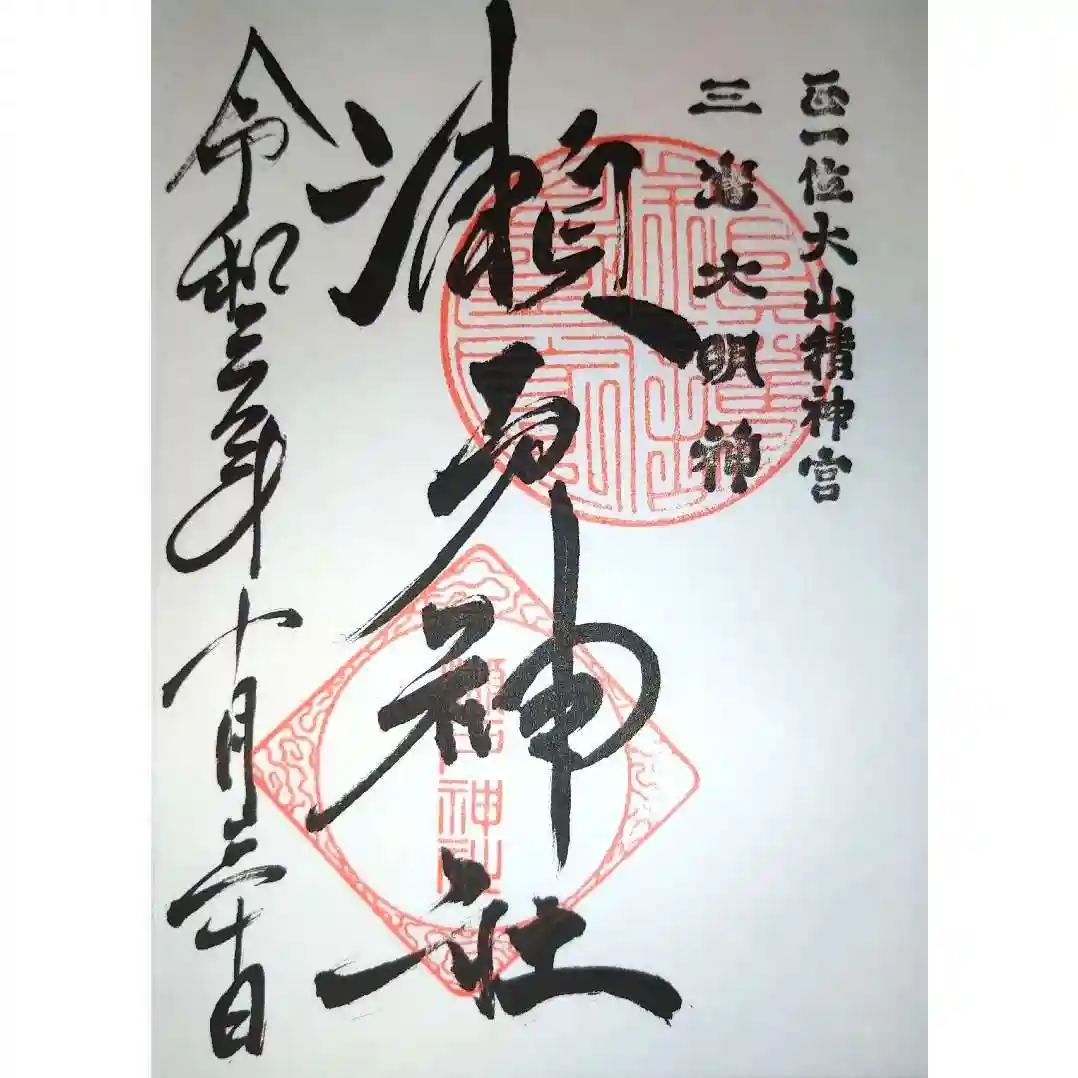 正一位大山積神宮
三嶌大明神
瀬戸神社
令和三年十月三十日